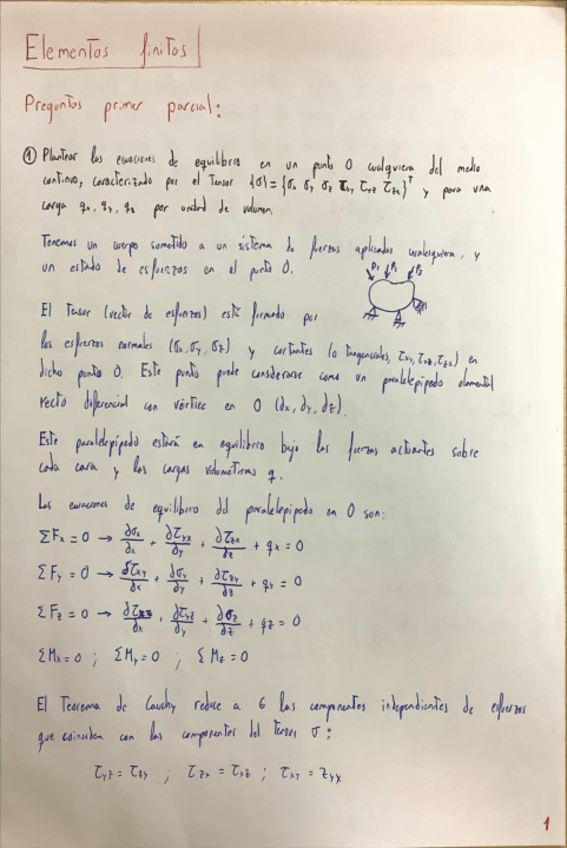 Elementos finitos
Preguntas primer parcial:
① Plantear las ecuaciones de equilibrio en un punto O cualquiera del medio
continuo, caracterizado por el Tensor {σ} = {σx σy σz τxy τyz τzx}ᵀ y para una
carga qx, qy, qz por unidad de volumen.
Tenemos un cuerpo sometido a un sistema de fuerzas aplicadas cualesquiera, y
un estado de esfuerzos en el punto O.
P1 P2 P3
El Tensor (vector de esfuerzos) está formado por
los esfuerzos normales (σx, σy, σz) y cortantes (o tangenciales, τxy, τyz, τzx) en
dicho punto O. Este punto puede considerarse como un paralelepípedo elemental
recto diferencial con vértice en O (dx, dy, dz).
Este paralelepípedo estará en equilibrio bajo las fuerzas actuantes sobre
cada cara y las cargas volumétricas q.
Las ecuaciones de equilibrio del paralelepípedo en O son:
ΣFx = 0 → ∂σx/∂x + ∂τyx/∂y + ∂τzx/∂z + qx = 0
ΣFy = 0 → ∂τxy/∂x + ∂σy/∂y + ∂τzy/∂z + qy = 0
ΣFz = 0 → ∂τxz/∂x + ∂τyz/∂y + ∂σz/∂z + qz = 0
ΣMx = 0 ; ΣMy = 0 ; ΣMz = 0
El Teorema de Cauchy reduce a 6 las componentes independientes de esfuerzos
que coinciden con las componentes del tensor σ:
τyz = τzy ; τzx = τxz ; τxy = τyx
1